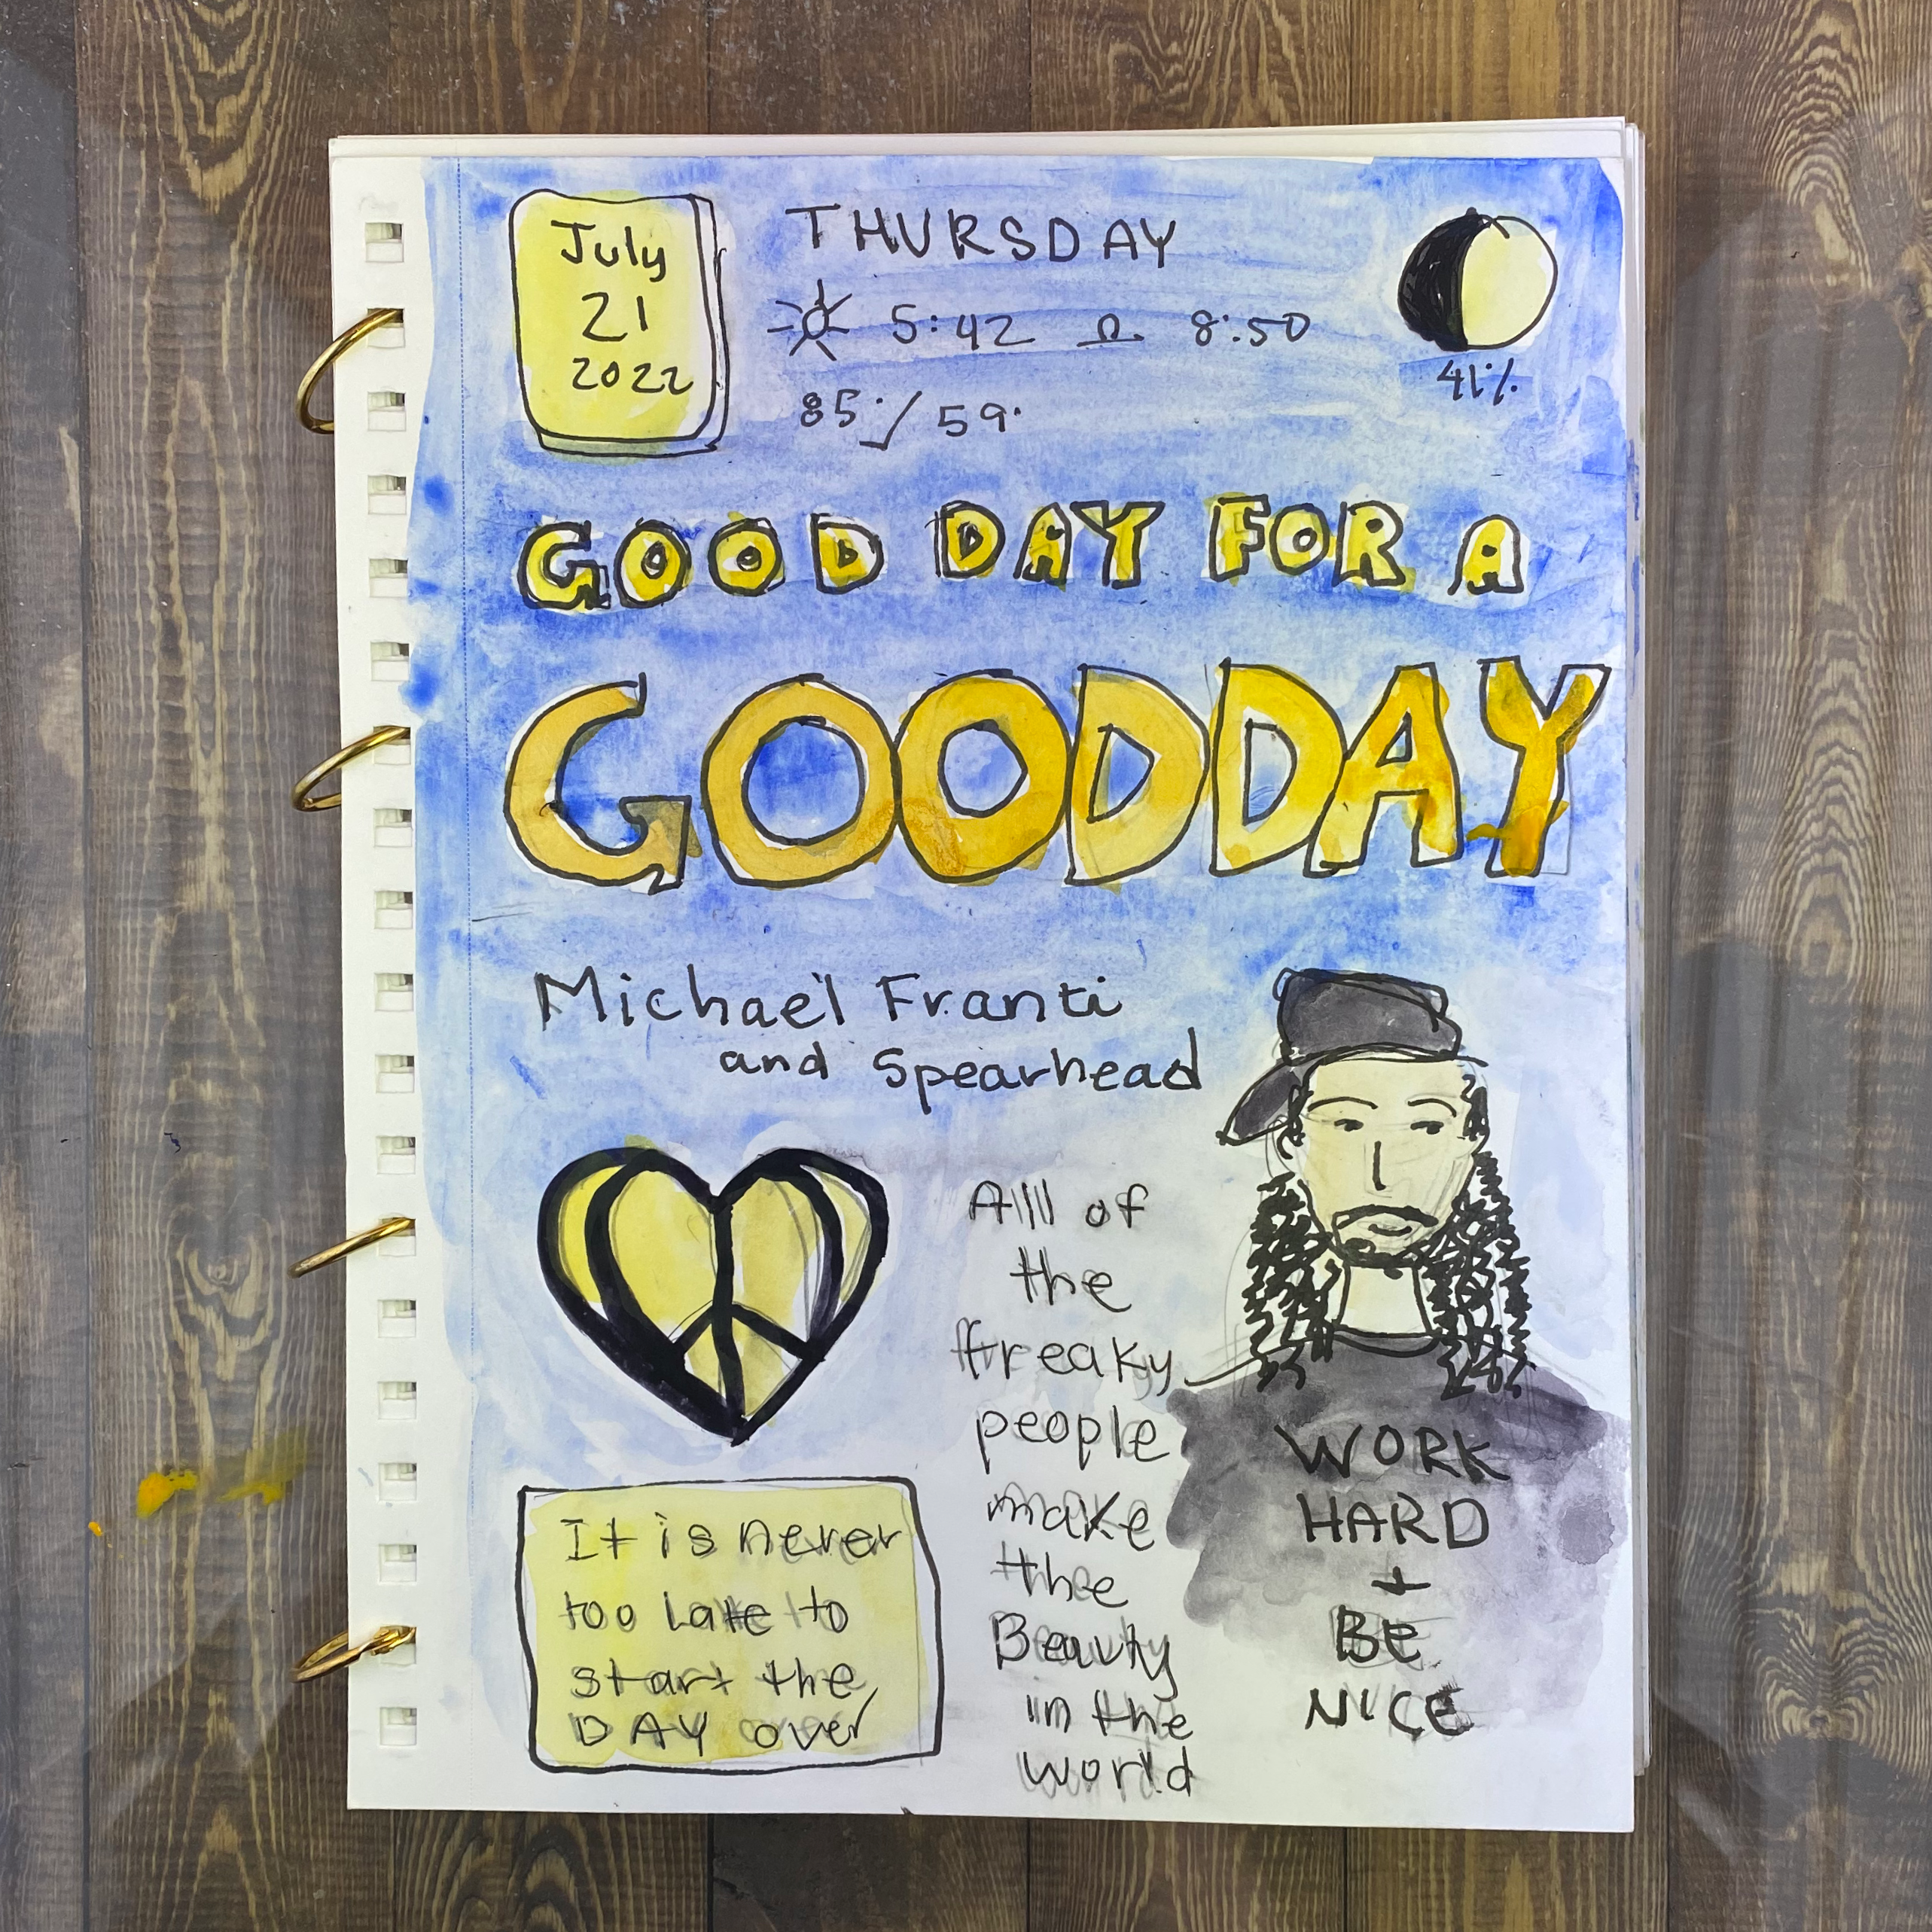 July
21
2022
THURSDAY
5:42 8:50
85°/59°
41%
GOOD DAY FOR A
GOOD DAY
Michael Franti
and Spearhead
All of
the
freaky
people
make
the
Beauty
in the
world
WORK
HARD
+
BE
NICE
It is never
too Late to
start the
DAY over